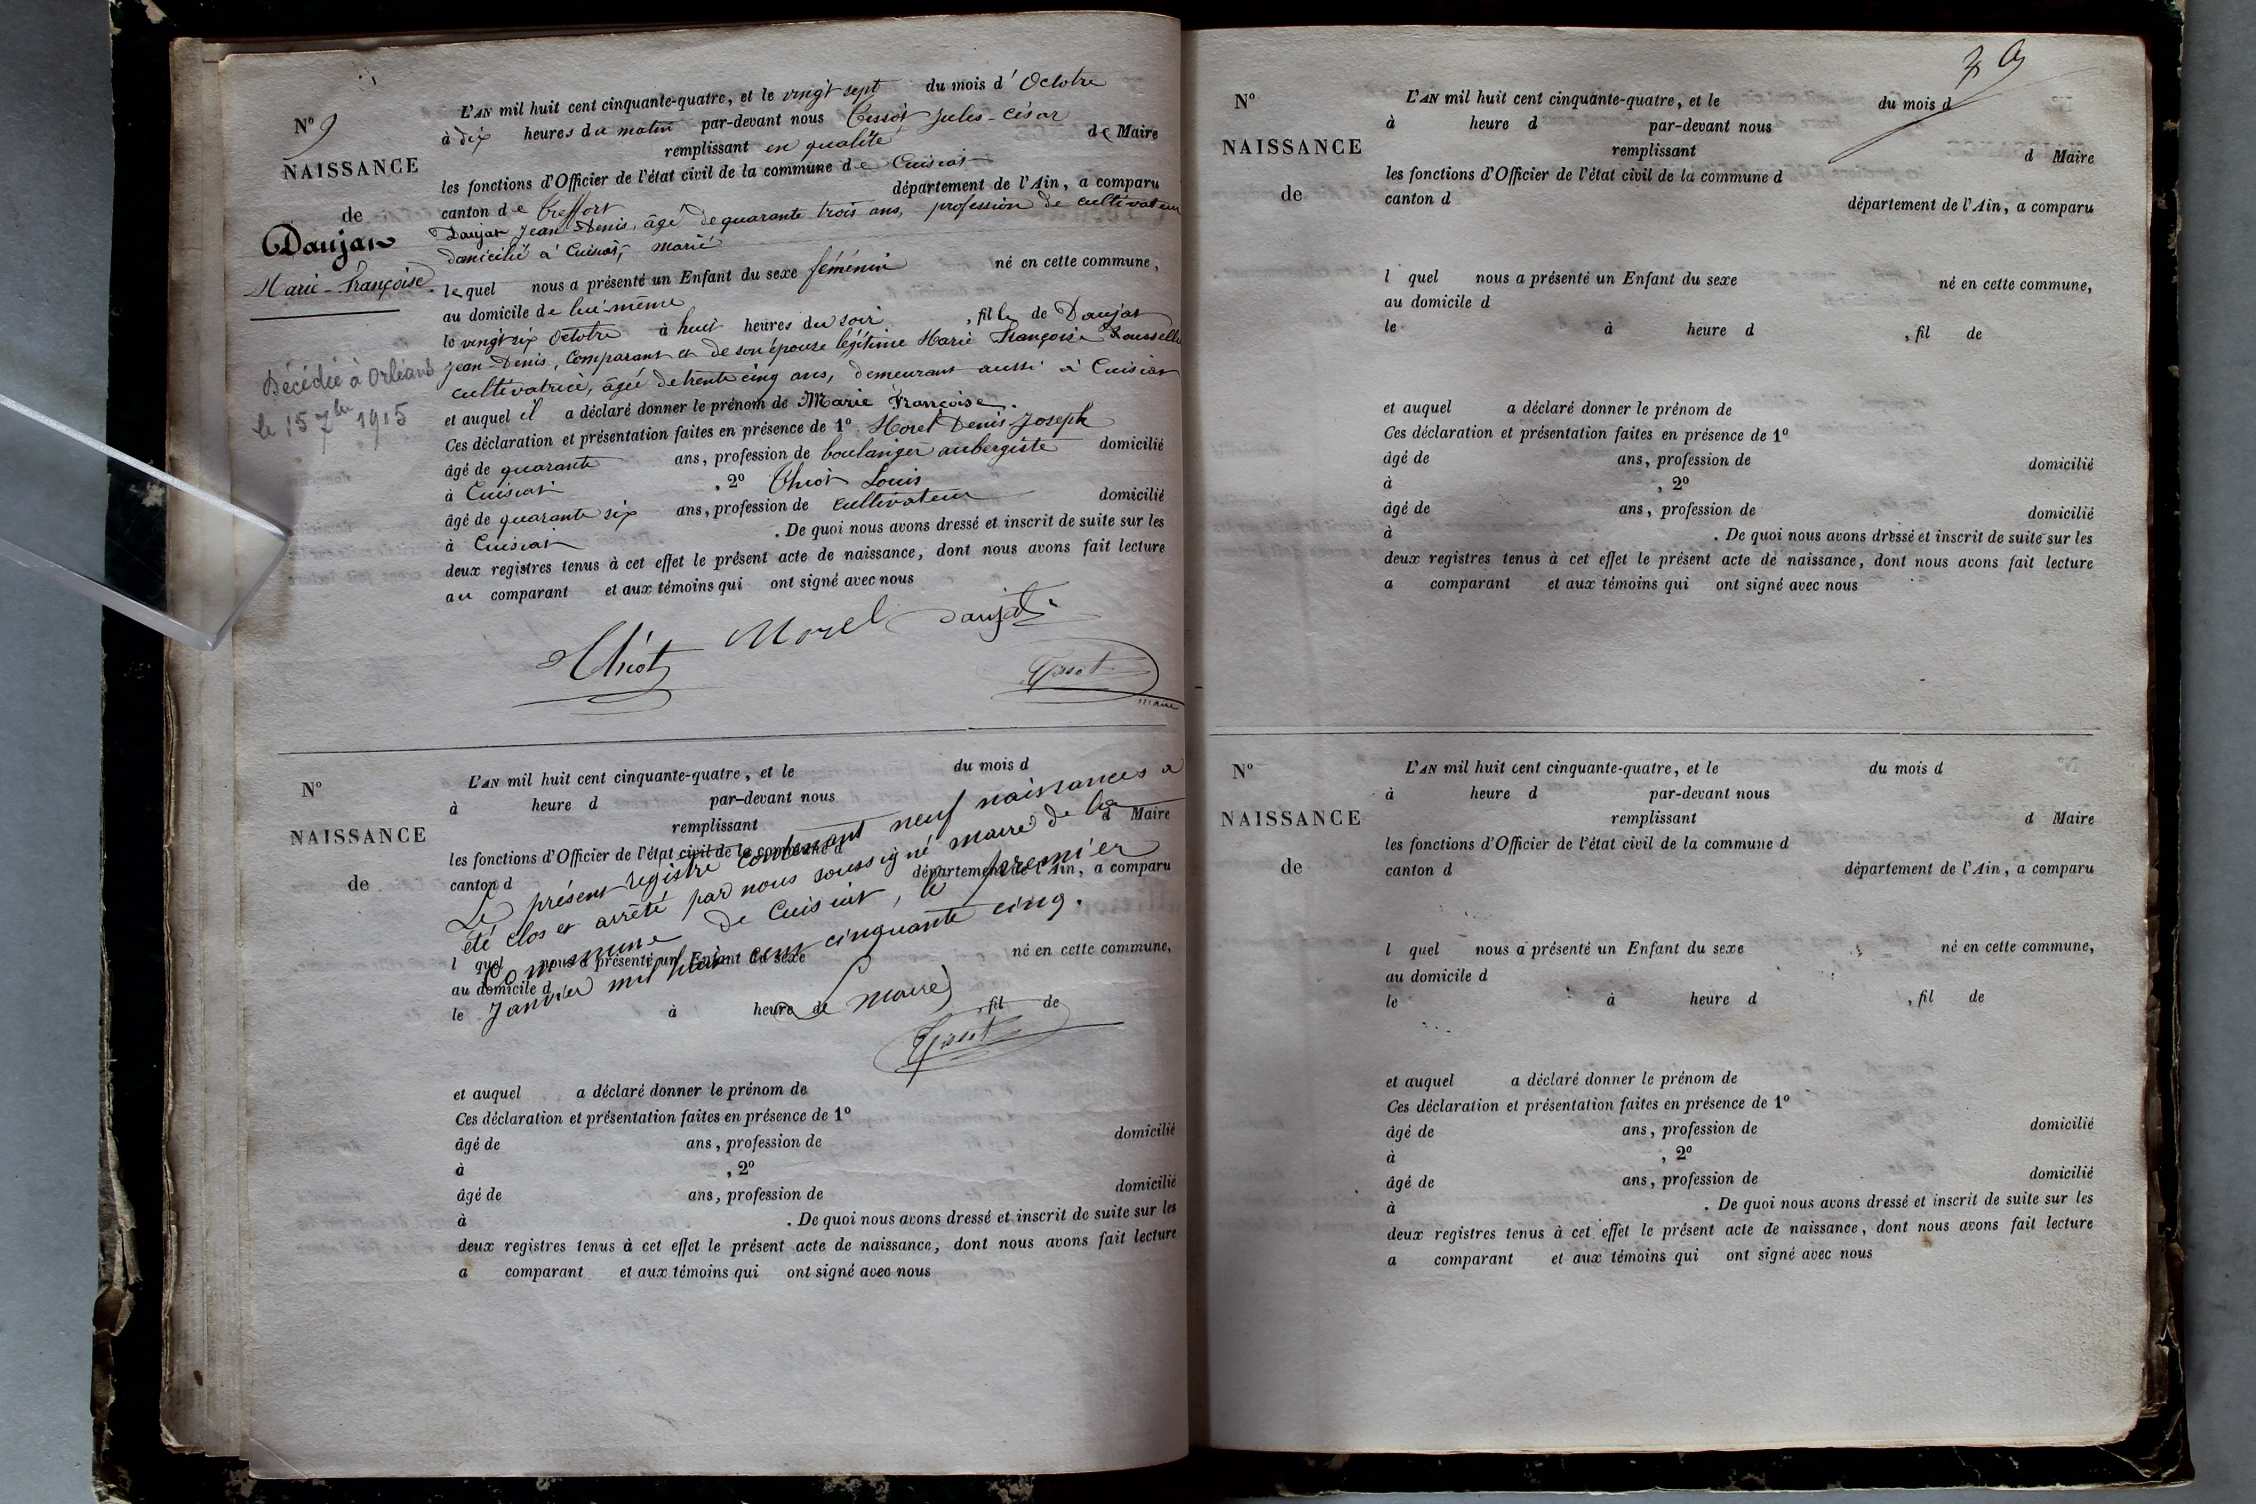 N° 9
NAISSANCE
de
Daujat
Marie-Françoise
Décédée à Orléans
le 15 7bre 1915
L'AN mil huit cent cinquante-quatre, et le vingt sept du mois d'Octobre
à dix heures du matin par-devant nous Tissot Jules-César
remplissant en qualité de Maire
les fonctions d'Officier de l'état civil de la commune de Cuisiat
canton de Treffort département de l'Ain, a comparu
Daujat Jean-Denis, âgé de quarante trois ans, profession de cultivateur
domicilié à Cuisiat, marié
lequel nous a présenté un Enfant du sexe féminin né en cette commune,
au domicile de lui-même
le vingt six Octobre à huit heures du soir, fille de Daujat
Jean-Denis, Comparant et de son épouse légitime Marie Françoise Rousselle
cultivatrice, âgée de trente cinq ans, demeurant aussi à Cuisiat
et auquel il a déclaré donner le prénom de Marie Françoise.
Ces déclaration et présentation faites en présence de 1° Morel Denis-Joseph
âgé de quarante ans, profession de boulanger aubergiste domicilié
à Cuisiat, 2° Chiot Louis
âgé de quarante six ans, profession de cultivateur domicilié
à Cuisiat. De quoi nous avons dressé et inscrit de suite sur les
deux registres tenus à cet effet le présent acte de naissance, dont nous avons fait lecture
au comparant et aux témoins qui ont signé avec nous
Chiot Morel Daujat
Tissot
maire
N°
NAISSANCE
de
L'AN mil huit cent cinquante-quatre, et le du mois d
à heure d par-devant nous
remplissant d Maire
les fonctions d'Officier de l'état civil de la commune d
canton d département de l'Ain, a comparu
l quel nous a présenté un Enfant du sexe né en cette commune,
au domicile d
le à heure d , fil de
Le présent registre contenant neuf naissances a
été clos et arrêté par nous soussigné maire de la
Commune de Cuisiat, le premier
Janvier mil huit cent cinquante cinq.
Le maire
Tissot
et auquel a déclaré donner le prénom de
Ces déclaration et présentation faites en présence de 1°
âgé de ans, profession de domicilié
à , 2°
âgé de ans, profession de domicilié
à . De quoi nous avons dressé et inscrit de suite sur les
deux registres tenus à cet effet le présent acte de naissance, dont nous avons fait lecture
a comparant et aux témoins qui ont signé avec nous
N°
NAISSANCE
de
L'AN mil huit cent cinquante-quatre, et le du mois d
à heure d par-devant nous
remplissant d Maire
les fonctions d'Officier de l'état civil de la commune d
canton d département de l'Ain, a comparu
l quel nous a présenté un Enfant du sexe né en cette commune,
au domicile d
le à heure d , fil de
et auquel a déclaré donner le prénom de
Ces déclaration et présentation faites en présence de 1°
âgé de ans, profession de domicilié
à , 2°
âgé de ans, profession de domicilié
à . De quoi nous avons dressé et inscrit de suite sur les
deux registres tenus à cet effet le présent acte de naissance, dont nous avons fait lecture
a comparant et aux témoins qui ont signé avec nous
N°
NAISSANCE
de
L'AN mil huit cent cinquante-quatre, et le du mois d
à heure d par-devant nous
remplissant d Maire
les fonctions d'Officier de l'état civil de la commune d
canton d département de l'Ain, a comparu
l quel nous a présenté un Enfant du sexe né en cette commune,
au domicile d
le à heure d , fil de
et auquel a déclaré donner le prénom de
Ces déclaration et présentation faites en présence de 1°
âgé de ans, profession de domicilié
à , 2°
âgé de ans, profession de domicilié
à . De quoi nous avons dressé et inscrit de suite sur les
deux registres tenus à cet effet le présent acte de naissance, dont nous avons fait lecture
a comparant et aux témoins qui ont signé avec nous